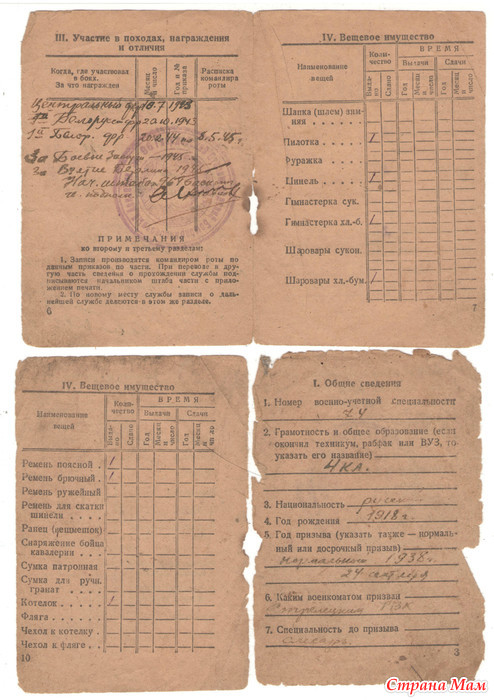 III. Участие в походах, награждения
и отличия
Когда, где участвовал
в боях.
За что награжден
Месяц
и число
Год и №
приказа
Расписка
командира
роты
Центральный фр 10.7 1943
Белорус фр 20.10.1943
1й Белор. фр. 20.2.44 5.5.45г.
За Боевые 1945
За Взятие Берлина 1945
Нач. штаба
ПРИМЕЧАНИЯ
ко второму и третьему разделам:
1. Записи производятся командиром роты по
данным приказов по части. При переводе в дру-
гую часть сведения о прохождении службы под-
писываются начальником штаба части с приложе-
нием печати.
2. По новому месту службы записи о даль-
нейшей службе делаются в этом же разделе.
6
IV. Вещевое имущество
Наименование
вещей
Коли-
чество
ВРЕМЯ
Выдачи
Сдачи
Выда-
но
Сдано
Год
Месяц
и число
Год
Месяц
и число
Шапка (шлем) зим-
няя
Пилотка 1
Фуражка
Шинель 1
Гимнастерка сук.
Гимнастерка хл.-б. 1
Шаровары сукон.
Шаровары хл.-бум. 1
7
IV. Вещевое имущество
Наименование
вещей
Коли-
чество
ВРЕМЯ
Выдачи
Сдачи
Выда-
но
Сдано
Год
Месяц
и число
Год
Месяц
и число
Ремень поясной 1
Ремень брючный 1
Ремень ружейный
Ремень для скатки
шинели
Ранец (вещмешок) 1
Снаряжение бойца
кавалерии
Сумка патронная
Сумка для ручн.
гранат
Котелок 1
Фляга
Чехол к котелку
Чехол к фляге
10
I. Общие сведения
1. Номер военно-учетной специальности
2. Грамотность и общее образование (если
окончил техникум, рабфак или ВУЗ, то
указать его название)
4 кл.
3. Национальность русский
4. Год рождения 1918 г.
5. Год призыва (указать также — нормаль-
ный или досрочный призыв)
нормальный 1938 г.
24 октября
6. Каким военкоматом призван
РВК
7. Специальность до призыва
слесарь
3
Страна Мам